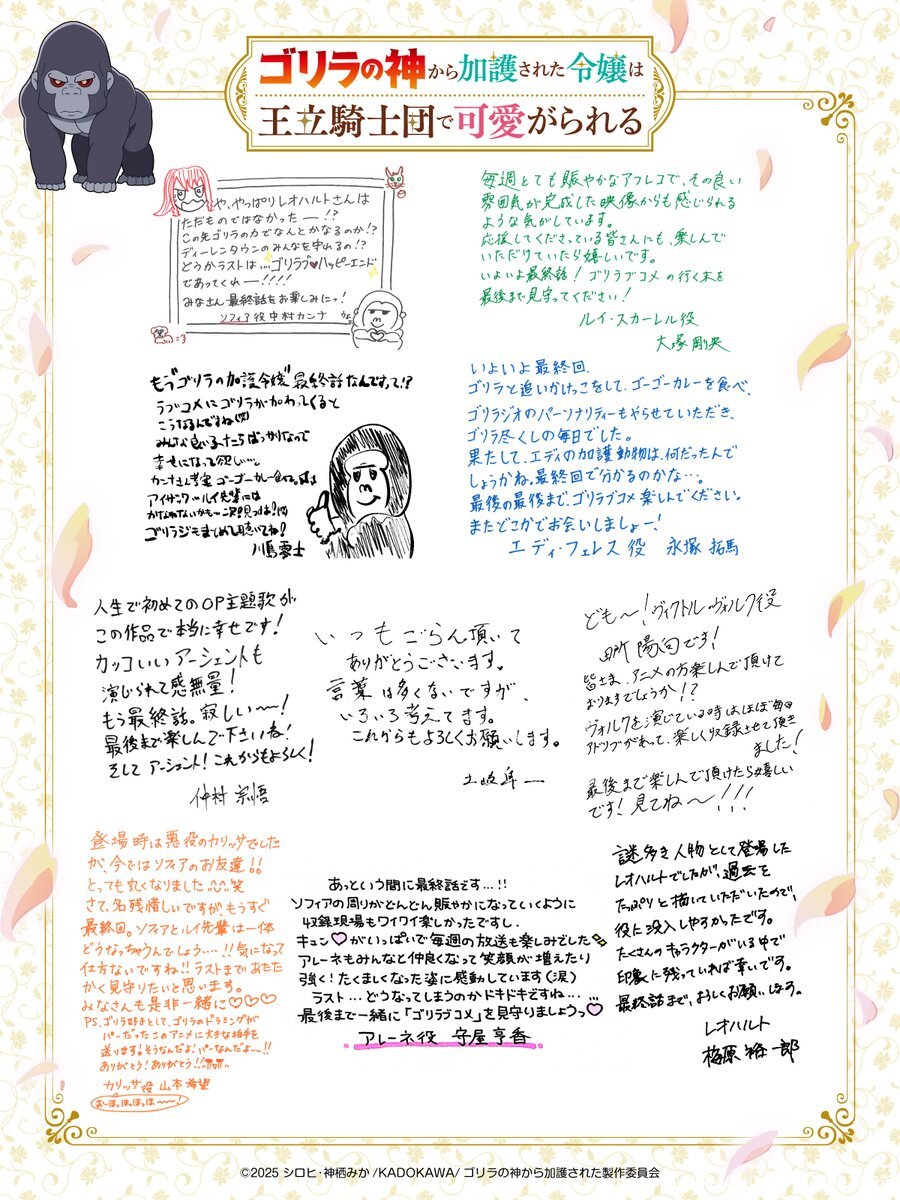 ゴリラの神から加護された令嬢は
王立騎士団で可愛がられる
や、やっぱりレオハルトさんは
ただものではなかったー!?
この先ゴリラの力でなんとかなるのか!?
ディーレンタウンのみんなを守れるの!?
どうかラストは…ゴリラブ♥ハッピーエンド
であってくれー!!!!
みなさん最終話をお楽しみにっ!
ソフィア役 中村カンナ
毎週とても賑やかなアフレコで、その良い
雰囲気が完成した映像からも感じられる
ような気がしています。
応援してくださっている皆さんにも、楽しんで
いただけていたら嬉しいです。
いよいよ最終話!ゴリラブコメの行く末を
最後まで見守ってください!
ルイ・スカーレル役
大塚剛央
もう“ゴリラの加護令嬢”最終話なんですって!?
ラブコメにゴリラが加わってくると
こうなるんですね(笑)
みんな良い子たちばっかりなので
幸せになって欲しい…。
カンナさん考案ゴーゴーカレー食べ
アイザック ルイ先輩には
ゴリラジもまとめて聴いてね!
川島零士
いよいよ最終回.
ゴリラと追いかけっこをして、ゴーゴーカレーを食べ、
ゴリラジオのパーソナリティーもやらせていただき、
ゴリラ尽くしの毎日でした。
果たして、エディの加護動物は、何だったんで
しょうかね。最終回で分かるのかな…。
最後の最後まで、ゴリラブコメ楽しんでください。
またどこかでお会いしましょー!
エディ・フェレス役 永塚拓馬
人生で初めてのOP主題歌が
この作品で本当に幸せです!
カッコいいアーシェントも
演じられて感無量!
もう最終話。寂しい〜!
最後まで楽しんで下さいね!
そしてアーシェント!これからもよろしく!
仲村宗悟
いつもごらん頂いて
ありがとうございます。
言葉は多くないですが、
いろいろ考えてます。
これからもよろしくお願いします。
土岐隼一
ども〜!ヴィクトル・ヴォルク役
田所陽向です!
皆さま、アニメの方楽しんで頂けて
おりますでしょうか!?
ヴォルクを演じている時はほぼ毎回
アドリブがあって、楽しく収録させて頂き
ました!
最後まで楽しんで頂けたら嬉しい
です!見てね〜!!!
登場時は悪役のカリッサでした
が、今ではソフィアのお友達!!
とっても丸くなりました 笑
さて、名残惜しいですが、もうすぐ
最終回。ソフィアとルイ先輩は一体
どうなっちゃうんでしょう…!!気になって
仕方ないですね!!ラストまであたた
かく見守りたいと思います。
みなさんも是非一緒に♡♡♡
PS.ゴリラ好きとして、ゴリラのドラミングが
パーだったこのアニメに大きな拍手を
送ります!そうなんだよ!パーなんだよ…!!
ありがとう!ありがとう!!
カリッサ役 山本希望
おーほっほっほっほー〜!
あっという間に最終話です…!!
ソフィアの周りがどんどん賑やかになっていくように
収録現場もワイワイ楽しかったですし、
キュン♡がいっぱいで毎週の放送も楽しみでした
アレーネもみんなと仲良くなって笑顔が増えたり
強く!たくましくなった姿に感動しています(涙)
ラスト…どうなってしまうのかドキドキですね…
最後まで一緒に「ゴリラブコメ」を見守りましょうっ♡
アレーネ役 守屋亨香
謎多き人物として登場した
レオハルトでしたが、過去を
たっぷりと描いていただいたので、
役に没入しやすかったです。
たくさんのキャラクターがいる中で
印象に残っていれば幸いです。
最終話まで、よろしくお願いします。
レオハルト
梅原裕一郎
©2025 シロヒ・神栖みか /KADOKAWA/ ゴリラの神から加護された製作委員会